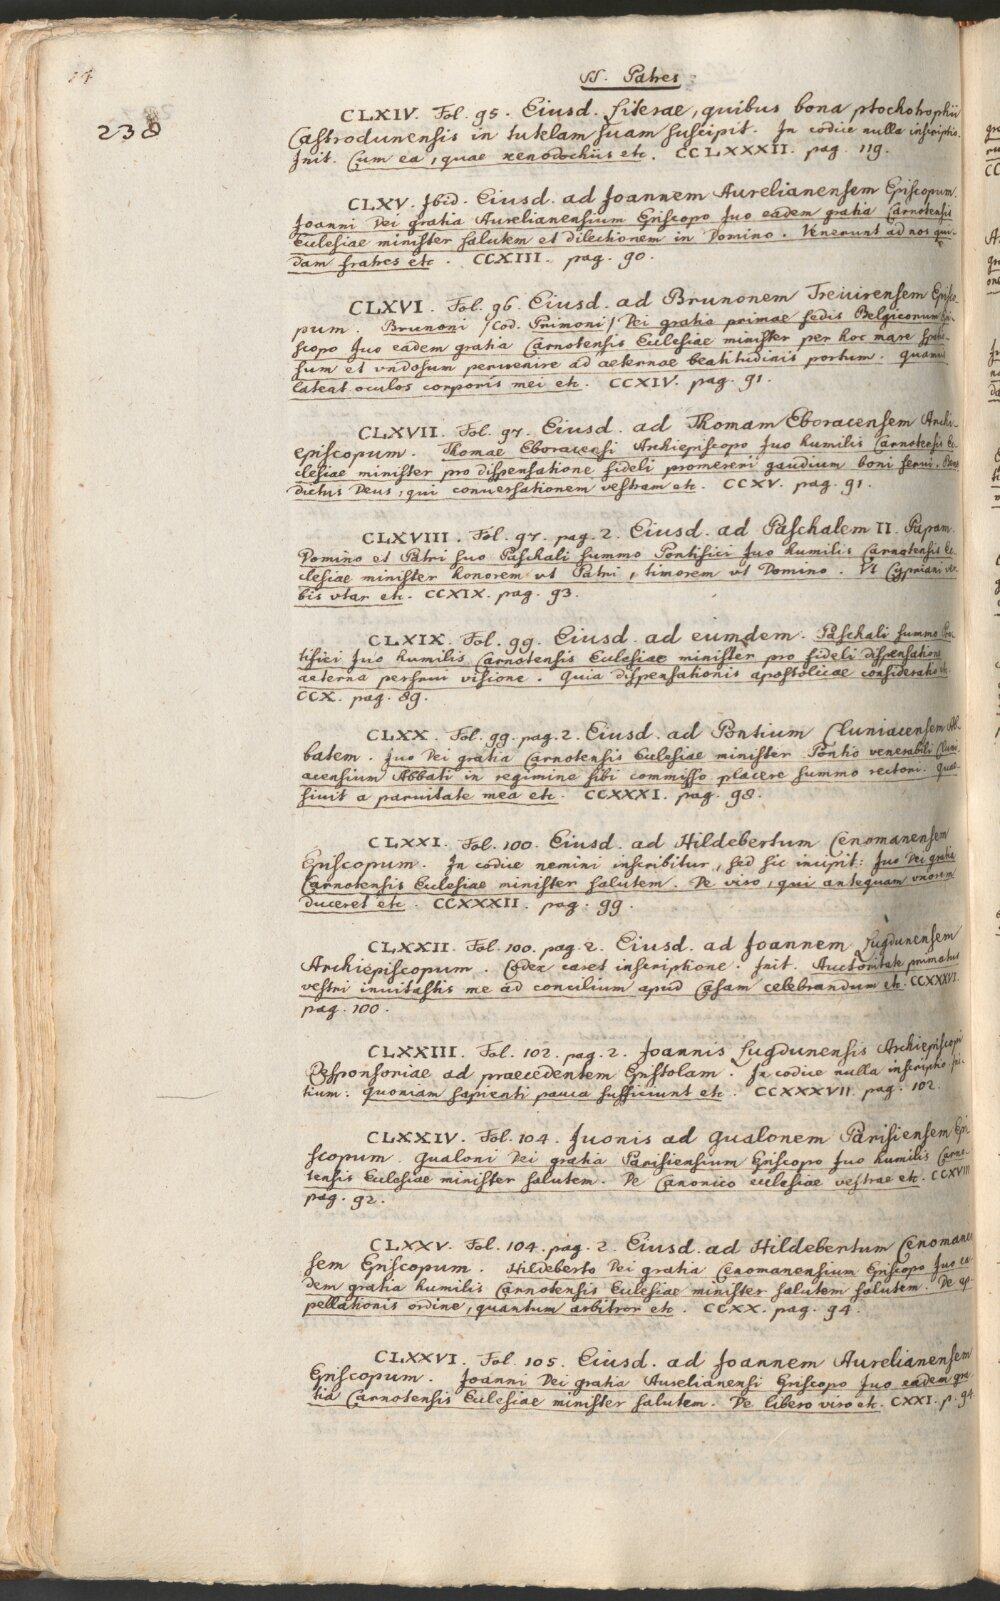 14
SS. Patres
238
CLXIV. Fol. 95. Eiusd. Literae, quibus bona ptochotrophii
Castrodunensis in tutelam suam suscipit. In codice nulla inscriptio.
Init. Cum ea, quae xenodochiis etc. CCLXXXII. pag. 119.
CLXV. Ibid. Eiusd. ad Joannem Aurelianensem Episcopum.
Joanni Dei gratia Aurelianensium Episcopo Juo eadem gratia Carnotensis
Ecclesiae minister salutem et dilectionem in Domino. Venerunt ad nos qui-
dam fratres etc. CCXIII. pag. 90.
CLXVI. Fol. 96. Eiusd. ad Brunonem Treuirensem Episco-
pum. Brunoni /Cod. Primoni/ Dei gratia primae sedis Belgicorum Epi-
scopo Juo eadem gratia Carnotensis Ecclesiae minister per hoc mare
sum et vndosum peruenire ad aeternae beatitudinis portum. Quamuis
lateat oculos corporis mei etc. CCXIV. pag. 91.
CLXVII. Fol. 97. Eiusd. ad Thomam Eboracensem Archi-
episcopum. Thomae Eboracensi Archiepiscopo Juo humilis Carnotensis Ec-
clesiae minister pro dispensatione fideli promereri gaudium boni serui. Bene-
dictus Deus, qui conuersationem vestram etc. CCXV. pag. 91.
CLXVIII. Fol. 97. pag. 2. Eiusd. ad Paschalem II. Papam.
Domino et Patri suo Paschali summo Pontifici Juo humilis Carnotensis Ec-
clesiae minister honorem vt Patri, timorem vt Domino. Vt Cypriani ver-
bis vtar etc. CCXIX. pag. 93.
CLXIX. Fol. 99. Eiusd. ad eumdem. Paschali summo Pon-
tifici Juo humilis Carnotensis Ecclesiae minister pro fideli dispensatione
aeterna perfrui visione. Quia dispensationis apostolicae consideratio etc.
CCX. pag. 89.
CLXX. Fol. 99. pag. 2. Eiusd. ad Pontium Cluniacensem Ab-
batem. Juo Dei gratia Carnotensis Ecclesiae minister Pontio venerabili Cluni-
acensium Abbati in regimine sibi commisso placere summo rectori. Quae-
siuit a paruitate mea etc. CCXXXI. pag. 98.
CLXXI. Fol. 100. Eiusd. ad Hildebertum Cenomanensem
Episcopum. In codice nemini inscribitur, sed sic incipit: Juo Dei gratia
Carnotensis Ecclesiae minister salutem. De viro, qui antequam vxorem
duceret etc. CCXXXII. pag. 99.
CLXXII. Fol. 100. pag. 2. Eiusd. ad Joannem Lugdunensem
Archiepiscopum. Codex caret inscriptione. Init. Auctoritate primatus
vestri inuitastis me ad concilium apud Asam celebrandum etc. CCXXXVI.
pag. 100.
CLXXIII. Fol. 102. pag. 2. Joannis Lugdunensis Archiepiscopi
Responsoriae ad praecedentem Epistolam. In codice nulla inscriptio. Ini-
tium: Quoniam sapienti pauca sufficiunt etc. CCXXXVII. pag. 102.
CLXXIV. Fol. 104. Juonis ad Gualonem Parisiensem Epi-
scopum. Gualoni Dei gratia Parisiensium Episcopo Juo humilis Carno-
tensis Ecclesiae minister salutem. De Canonico ecclesiae vestrae etc. CCXVIII.
pag. 92.
CLXXV. Fol. 104. pag. 2. Eiusd. ad Hildebertum Cenomanen-
sem Episcopum. Hildeberto Dei gratia Cenomanensium Episcopo Juo ea-
dem gratia humilis Carnotensis Ecclesiae minister salutem salutem. De ap-
pellationis ordine, quantum arbitror etc. CCXX. pag. 94.
CLXXVI. Fol. 105. Eiusd. ad Joannem Aurelianensem
Episcopum. Joanni Dei gratia Aurelianensi Episcopo Juo eadem gra-
tia Carnotensis Ecclesiae minister salutem. De libero viro etc. CXXI. p. 94.